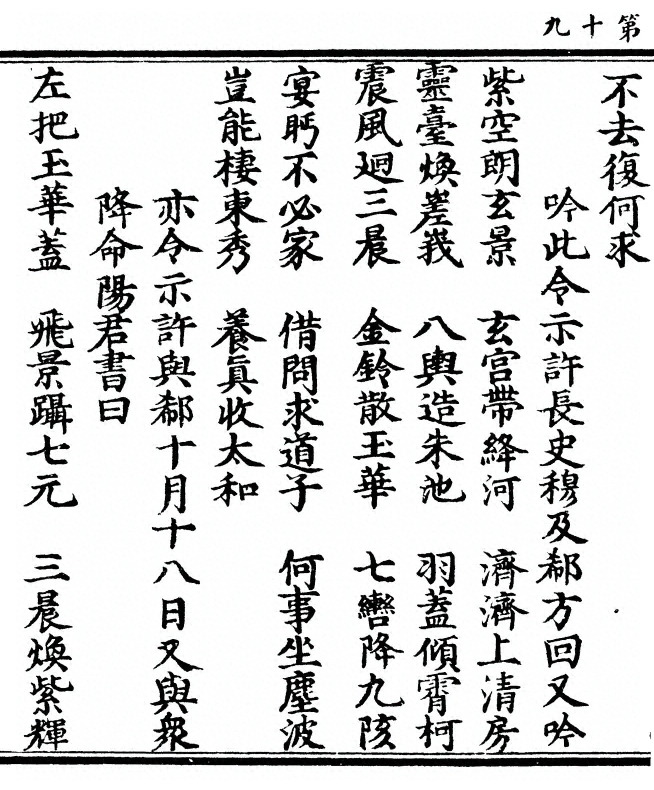 第十九
不去復何求
吟此令示許長史穆及郗方回又吟
紫空朗玄景　玄宮帶絳河　濟濟上清房
靈臺煥嵳峩　八輿造朱池　羽蓋傾霄柯
震風廻三晨　金鈴散玉華　七轡降九陔
宴眄不必家　借問求道子　何事坐塵波
豈能棲東秀　養真收太和
亦令示許與郗十月十八日又與衆
降命陽君書曰
左把玉華蓋　飛景躡七元　三晨煥紫輝